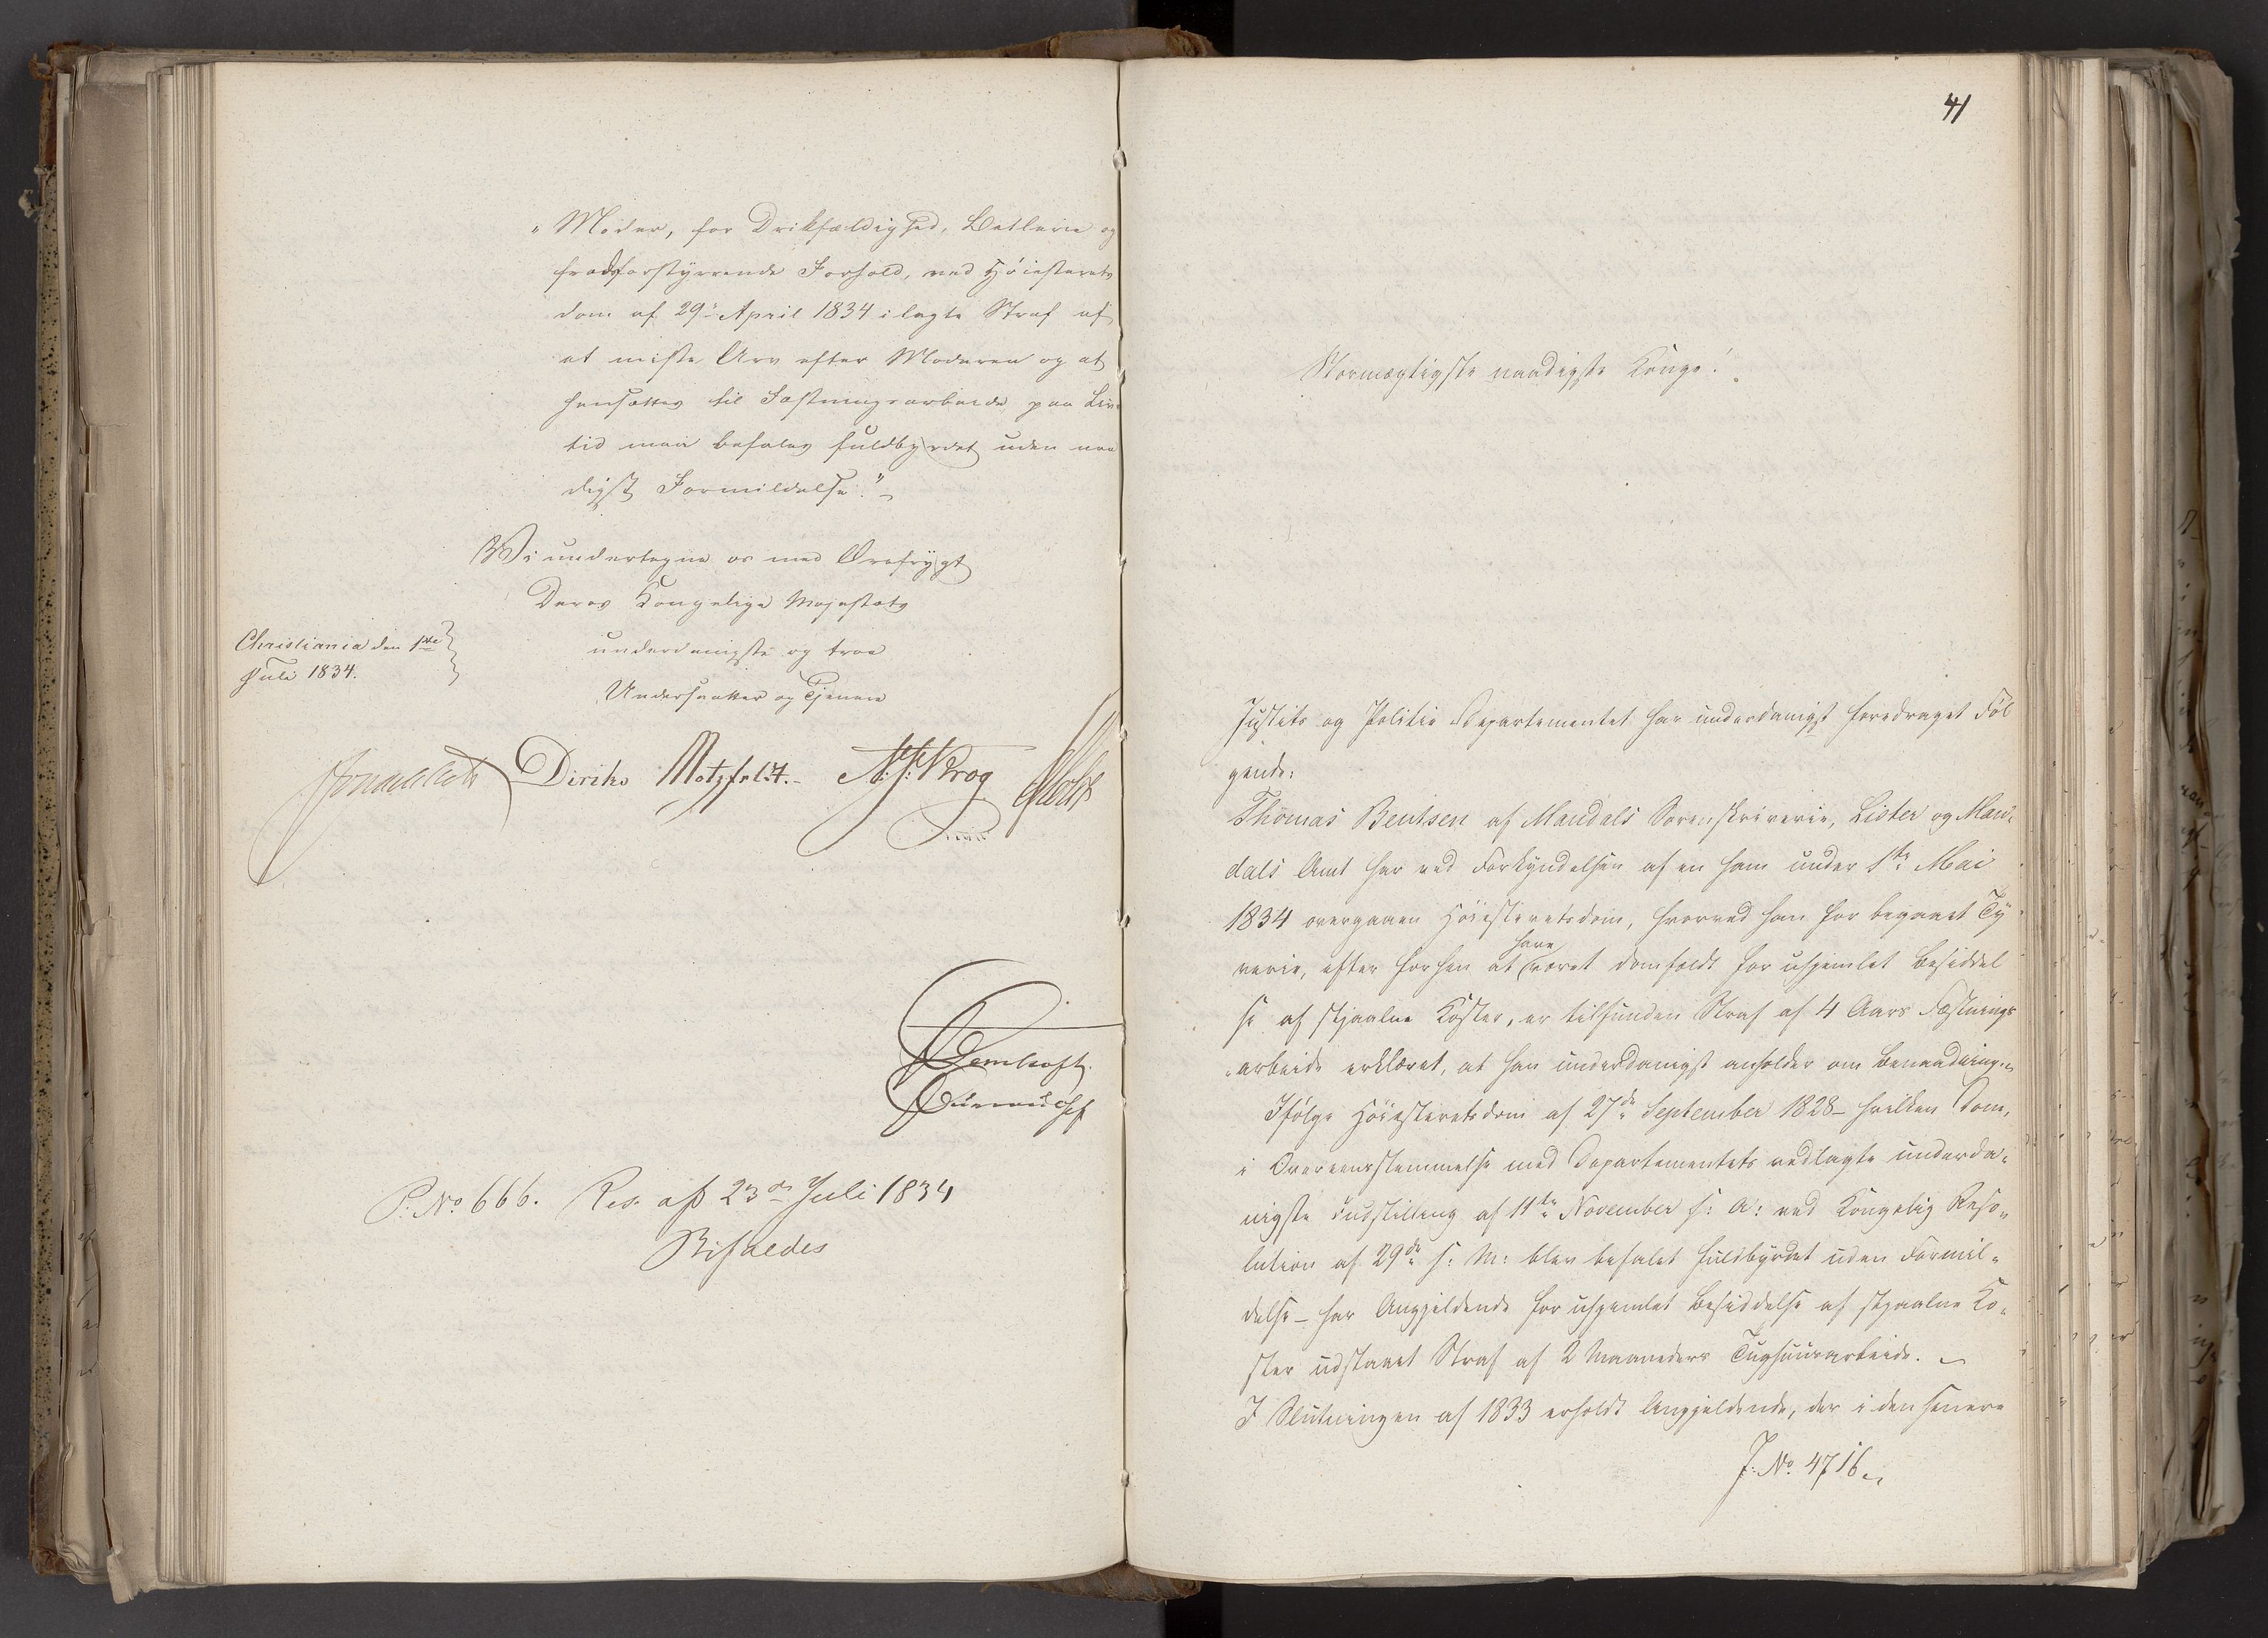 "Moder, for Drikfældighed, Betlerie og
fredsforstyrrende Forhold, ved Høiesterets
dom af 29: April 1834 ilagte Straf af
at miste Arv efter Moderen og at
hensættes til Fæstningsarbeide paa Livs
tid maa befales fuldbyrdet uden naa
digst Formildelse."
Vi undertegne os med Ærefrygt
Deres Kongelige Majestæts
Christiania den 1ste
Juli 1834.
underdanigste og troe
Undersaatter og Tjenere
Diriks Motzfeldt. Krog
P: No 666. Res. af 23de Juli 1834
Bifaldes
41
Stormægtigste naadigste Konge!
Justits og Politie Departementet har underdanigst foredraget Føl
gende:
Thomas Bentsen af Mandals Sorenskriverie, Lister og Man-
dals Amt har ved Forkyndelsen af en ham under 1ste Mai
1834 overgaaen Høiesteretsdom, hvorved han for begaaet Ty
verie, efter forhen at have været domfældt for uhjemlet Besiddel
se af stjaalne Koster, er tilfunden Straf af 4 Aars Fæstnings
arbeide erklæret, at han underdanigst anholder om Benaadning.
Ifølge Høiesteretsdom af 27de September 1828 - hvilken Dom,
i Overeensstemmelse med Departementets vedlagte underda-
nigste Indstilling af 11te November s: A: ved Kongelig Reso-
lution af 29de s: M: blev befalet fuldbyrdet uden Formil-
delse - har Angjeldende for uhjemlet Besiddelse af stjaalne Ko-
ster udstaaet Straf af 2 Maaneders Tugthuusarbeide.
I Slutningen af 1833 erholdt Angjeldende, der i den senere
J: No 4716